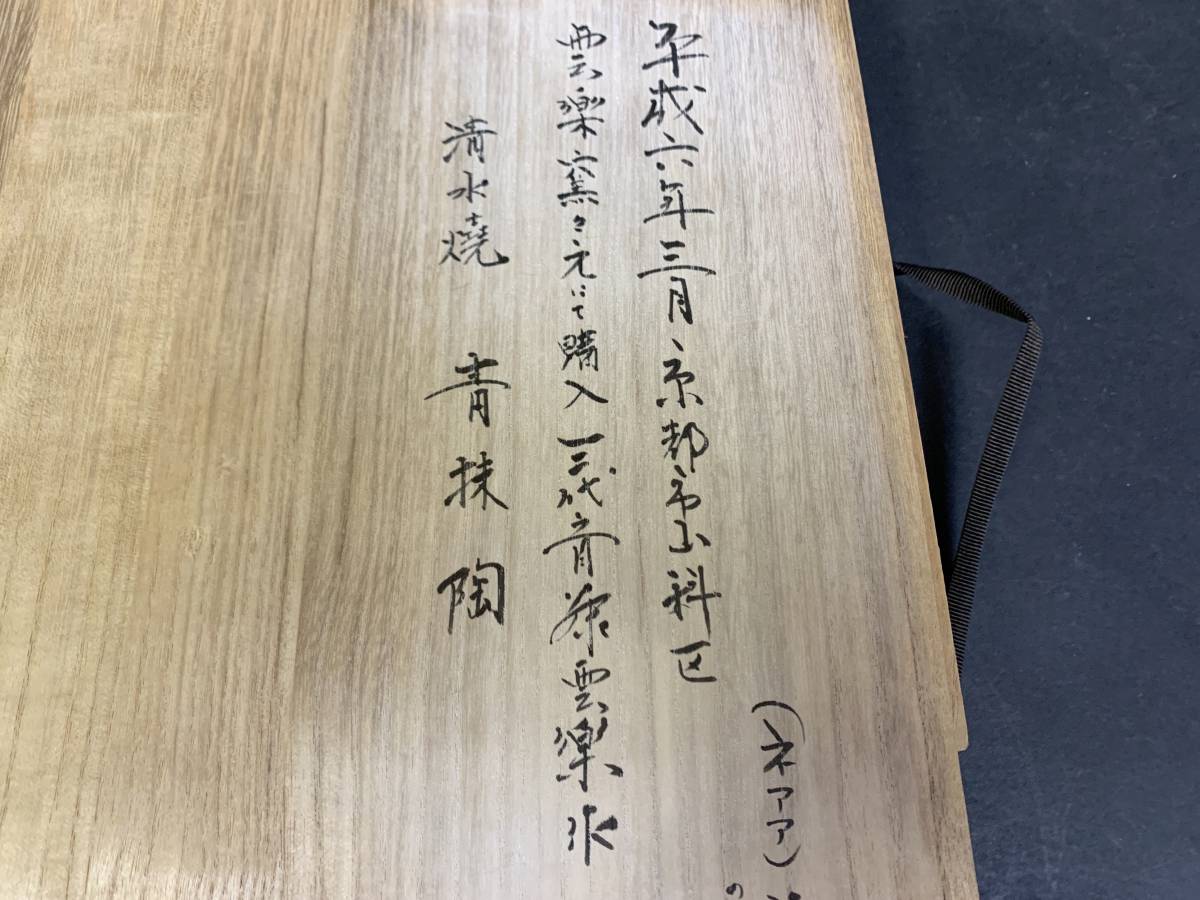 (ネアア)
の
平成六年三月京都市山科区
雲楽窯々元にて購入 三代斉藤雲楽作
清水燒 青抹陶